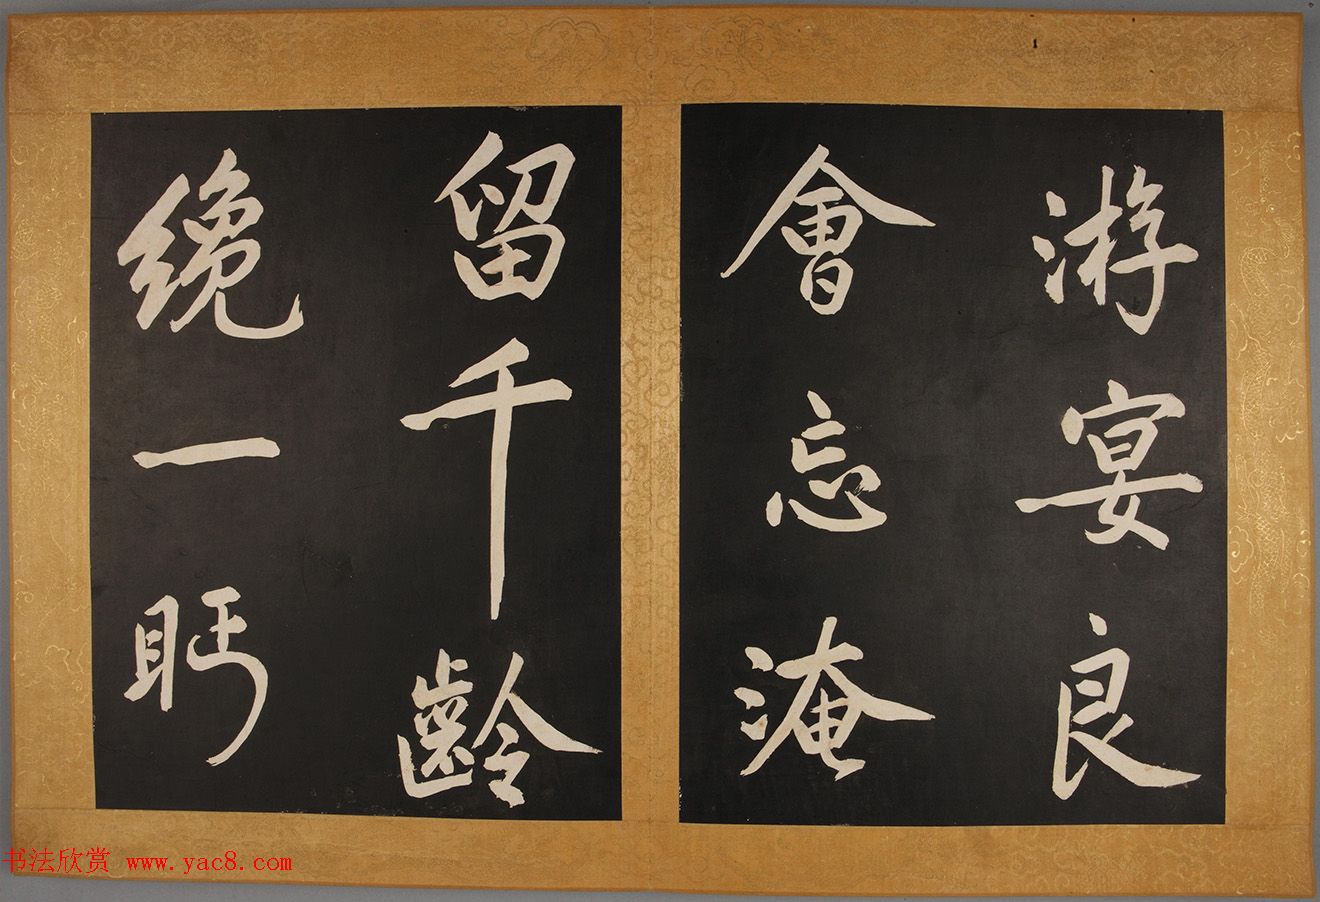 游宴良
會忘淹
留千齡
纔一眄
书法欣赏 www.yac8.com